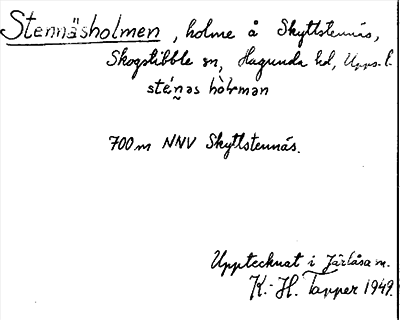 Stennäsholmen, holme å Skyttstennäs,
Skogstibble sn, Hagunda hd, Upps. l.
sténəs hòlmən
700 m NNV Skyttstennäs.
Upptecknat i Järlåsa sn.
K.-H. Tapper 1949.